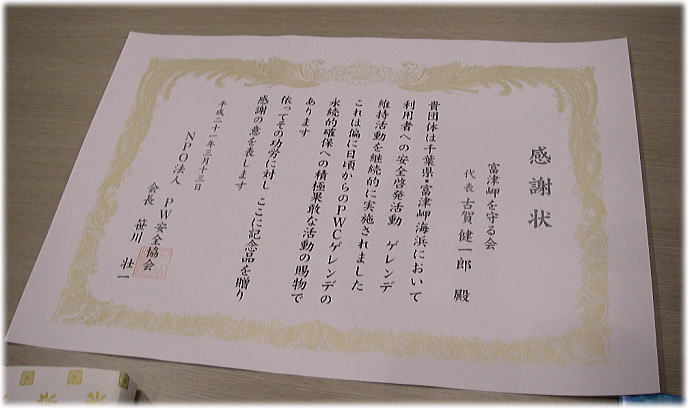 感謝状
富津岬を守る会
代表 古賀 健一郎 殿
貴団体は千葉県・富津岬海浜において
利用者への安全啓発活動 ゲレンデ
維持活動を継続的に実施されました
これは偏に日頃からのPWCゲレンデの
永続的確保への積極果敢な活動の賜物で
あります
依ってその功労に対し ここに記念品を贈り
感謝の意を表します
平成二十一年三月十三日
NPO法人 PW安全協会
会長 笹川 壮一